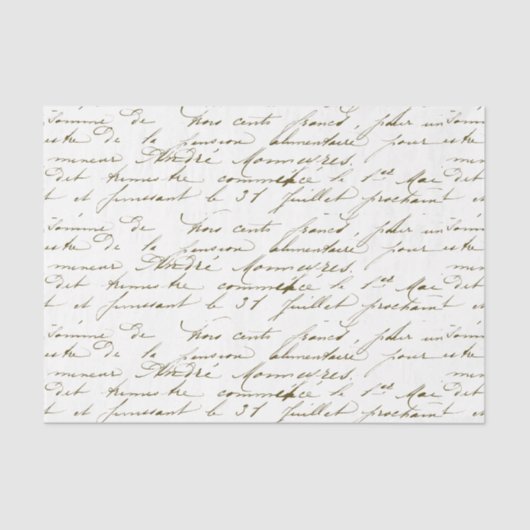 Somme de trois cents francs, pour un Somme
estre De la pension alimentaire pour un estre
mineur André Monnieres, mineur
Dit trimestre commence le 1er Mai Dit
t et finissant le 31 Juillet prochain t et
Somme de trois cents francs, pour un Somme
estre De la pension alimentaire pour estre
mineur André Monnieres, mineur
Dit trimestre commence le 1er Mai Dit
t et finissant le 31 Juillet prochain t et
Somme de trois cents francs, pour un Somme
estre De la pension alimentaire pour estre
mineur André Monnieres, mineur
Dit trimestre commence le 1er Mai Dit
t et finissant le 31 Juillet prochain t et